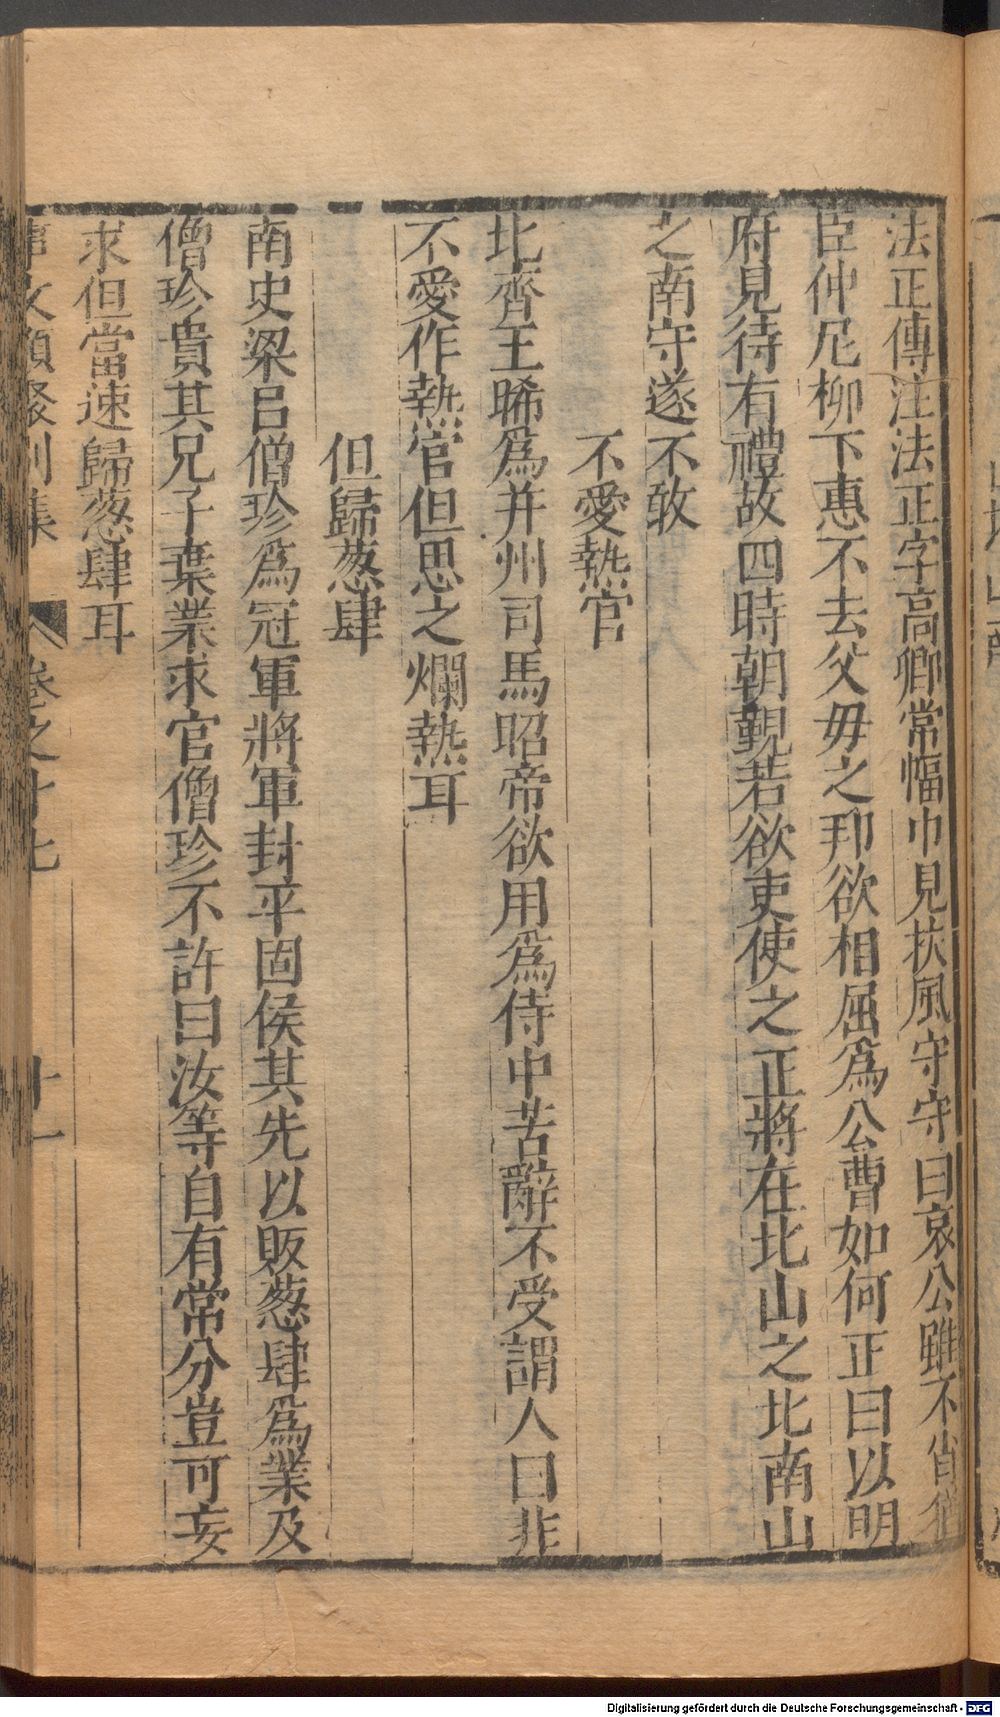 法正傳注法正字高卿常幅巾見扶風守守曰哀公雖不肖猶
臣仲尼柳下惠不去父毋之邦欲相屈爲公曹如何正曰以明
府見待有禮故四時朝覲若欲吏使之正將在北山之北南山
之南守遂不敢
不愛熱官
北齊王晞爲并州司馬昭帝欲用爲侍中苦辭不受謂人曰非
不愛作熱官但思之爛熱耳
但歸葱肆
南史梁呂僧珍爲冠軍將軍封平固侯其先以販葱肆爲業及
僧珍貴其兄子棄業求官僧珍不許曰汝等自有常分豈可妄
求但當速歸葱肆耳
事文類聚別集 卷之十七 十一
Digitalisierung gefördert durch die Deutsche Forschungsgemeinschaft - DFG